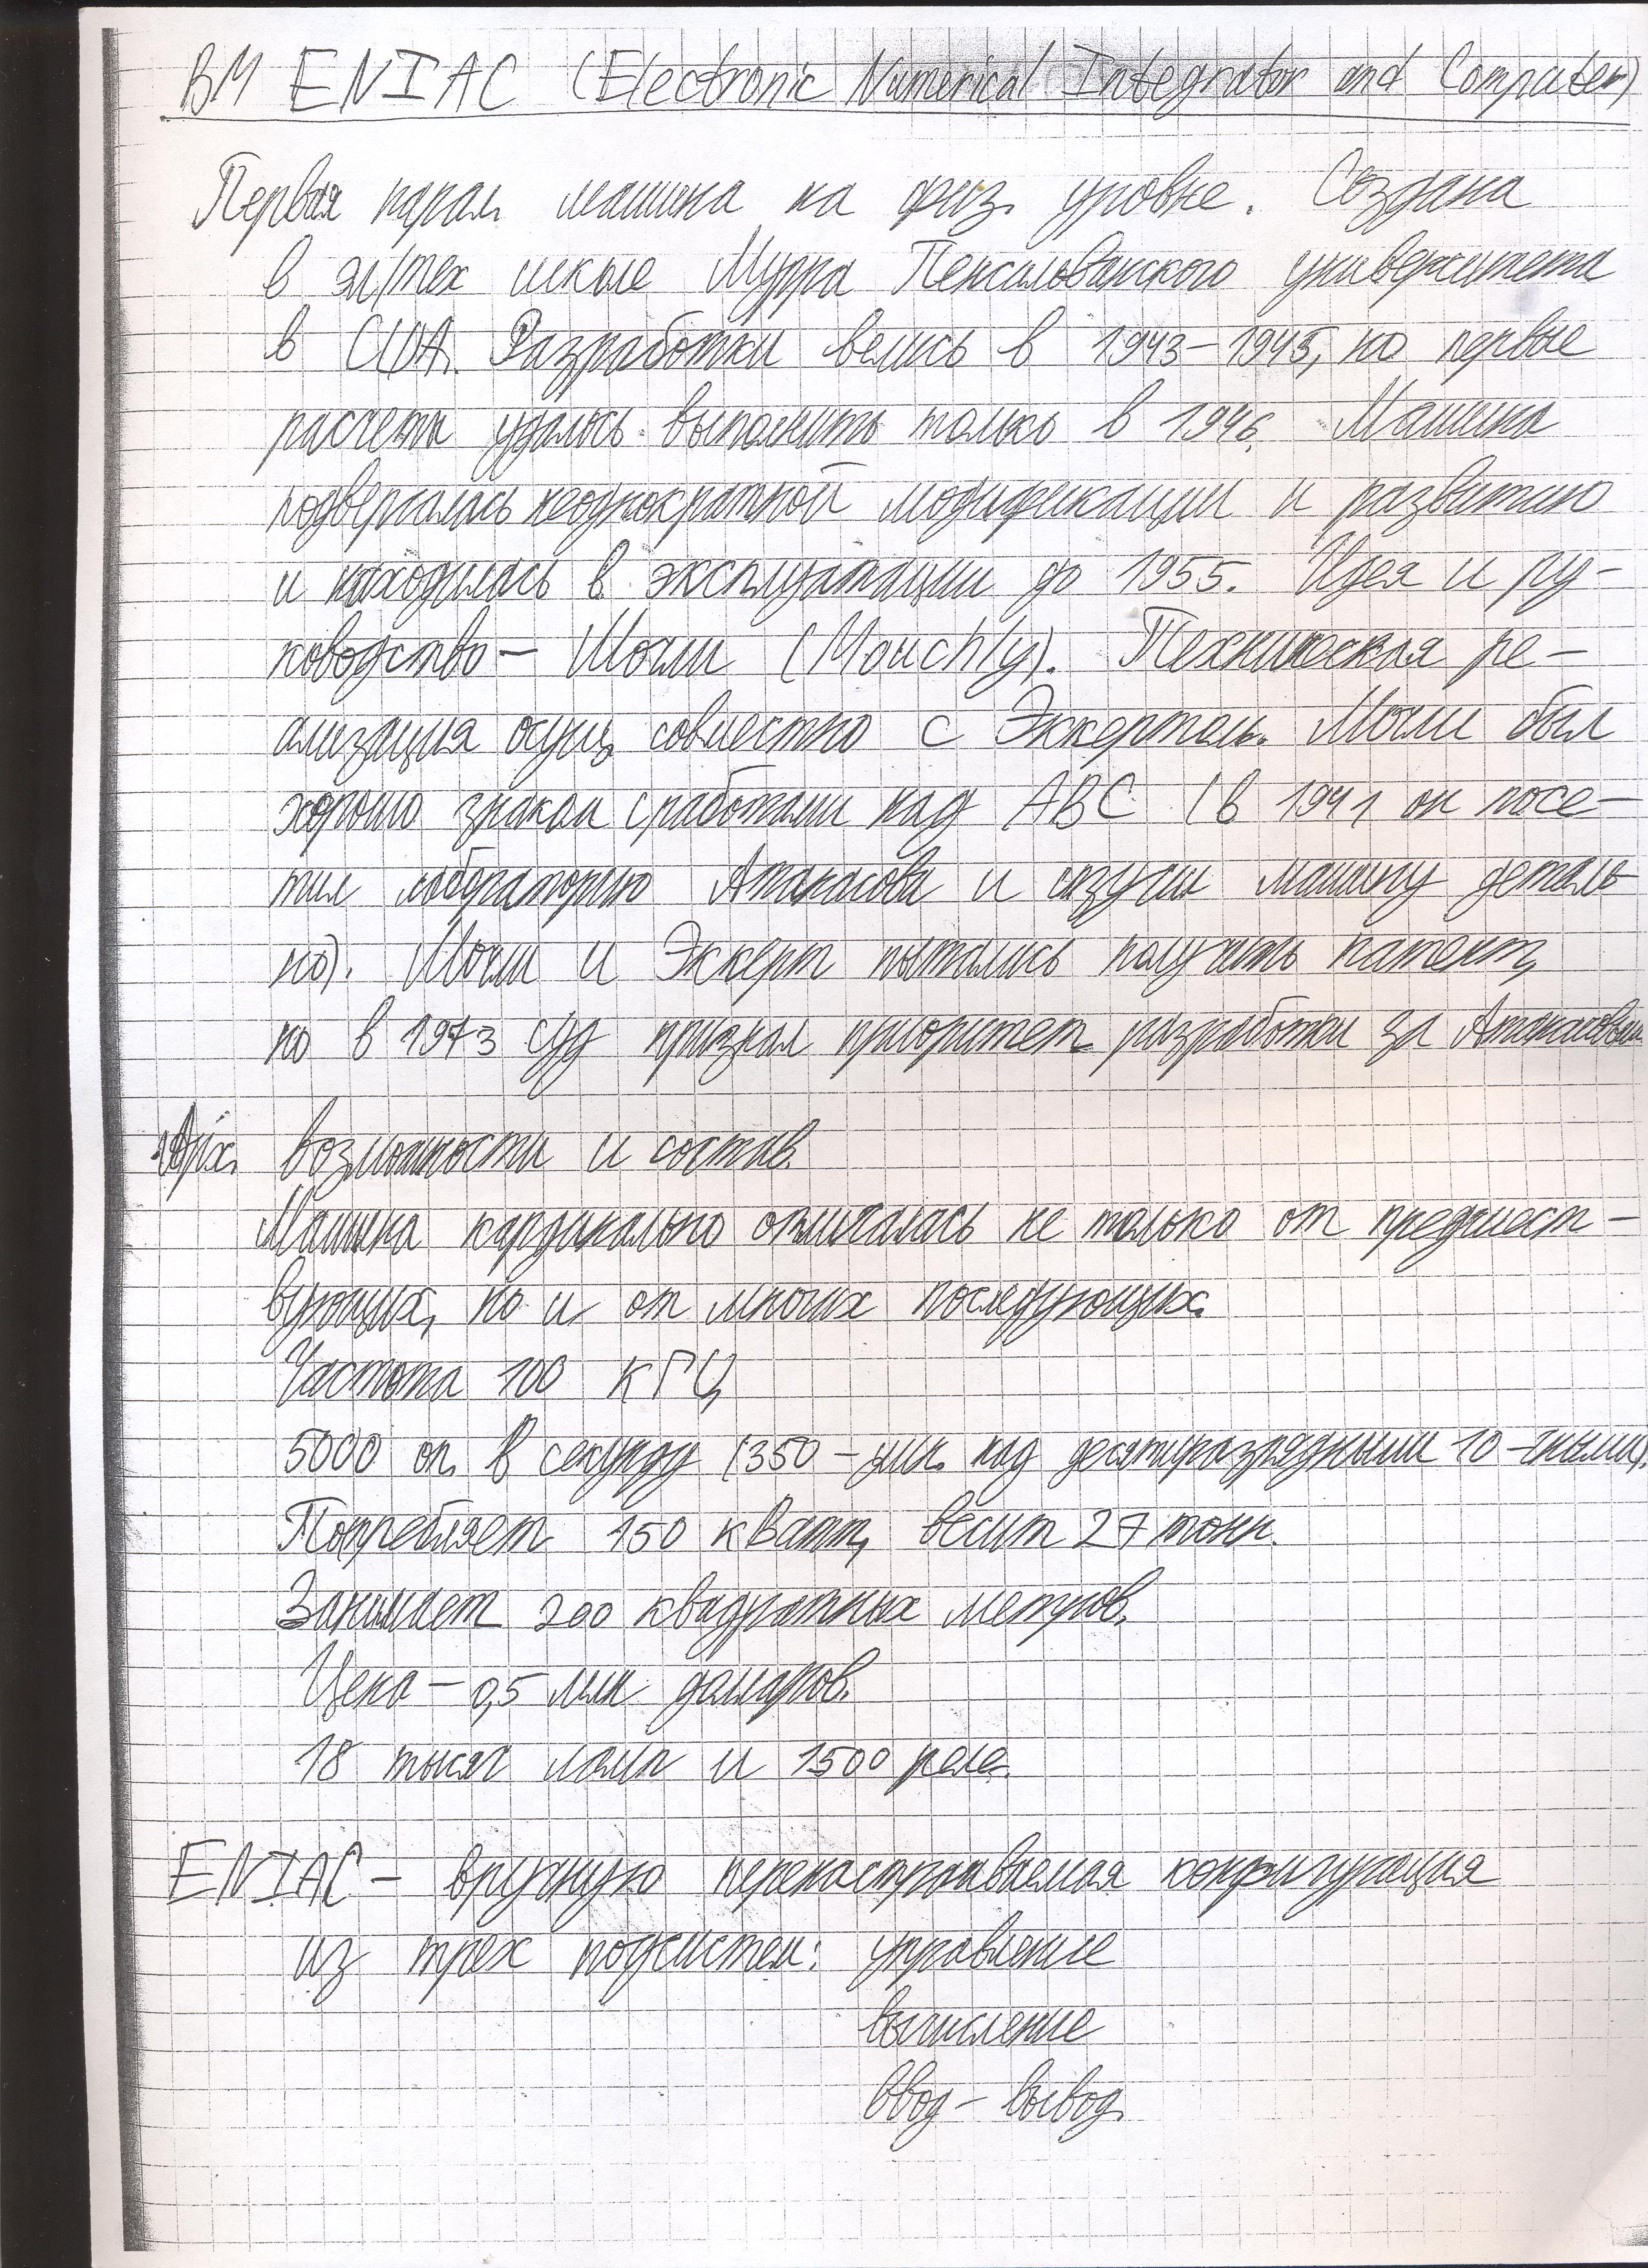 ВМ ENIAC (Electronic Numerical Integrator and Computer)
Первая парал. машина на физ. уровне. Создана
в эл/тех школе Мурра Пенсильванского университета
в США. Разработки велись в 1943-1945, но первые
расчеты удалось выполнить только в 1946. Машина
подвергалась неоднократной модификации и развитию
и находилась в эксплуатации до 1955. Идея и ру-
ководство - Мочли (Mauchly). Техническая ре-
ализация осущ. совместно с Эккертом. Мочли был
хорошо знаком с работами над ABC (в 1941 он посе-
тил лабораторию Атанасова и изучил машину деталь-
но). Мочли и Эккерт пытались получить патент,
но в 1973 суд признал приоритет разработки за Атанасовым
Арх. возможности и состав.
Машина кардинально отличалась не только от предшест-
вующих, но и от многих последующих.
Частота 100 кГц
5000 оп. в секунду (350 - умн. над десятиразрядными 10-чными).
Потребляет 150 кВатт, весит 27 тонн.
Занимает 200 квадратных метров.
Цена - 0,5 млн. долларов.
18 тысяч ламп и 1500 реле.
ENIAC - вручную перенастраиваемая конфигурация
из трех подсистем: управление
вычисление
ввод - вывод.